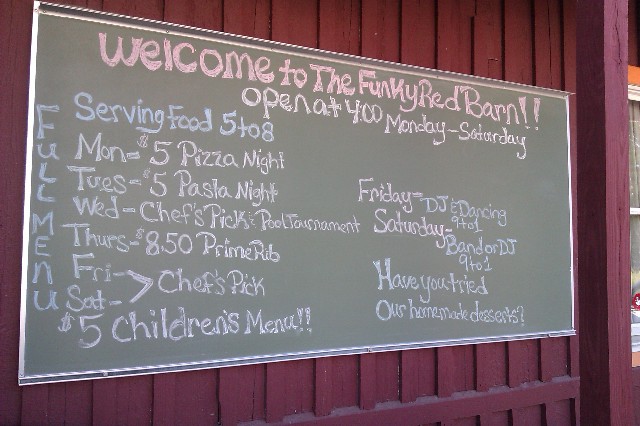 Welcome to The Funky Red Barn!!
open at 4:00
Monday-Saturday
Full Menu
Serving Food 5 to 8
Mon= $5 Pizza Night
Tues- $5 Pasta Night
Wed- Chef's Pick & Pool Tournament
Thurs- $8.50 Prime Rib
Fri-
Sat- > Chef's Pick
$5 Children's Menu!!
Friday= DJ & Dancing
9 to 1
Saturday-
Band or DJ
9 to 1
Have you tried
Our homemade desserts?